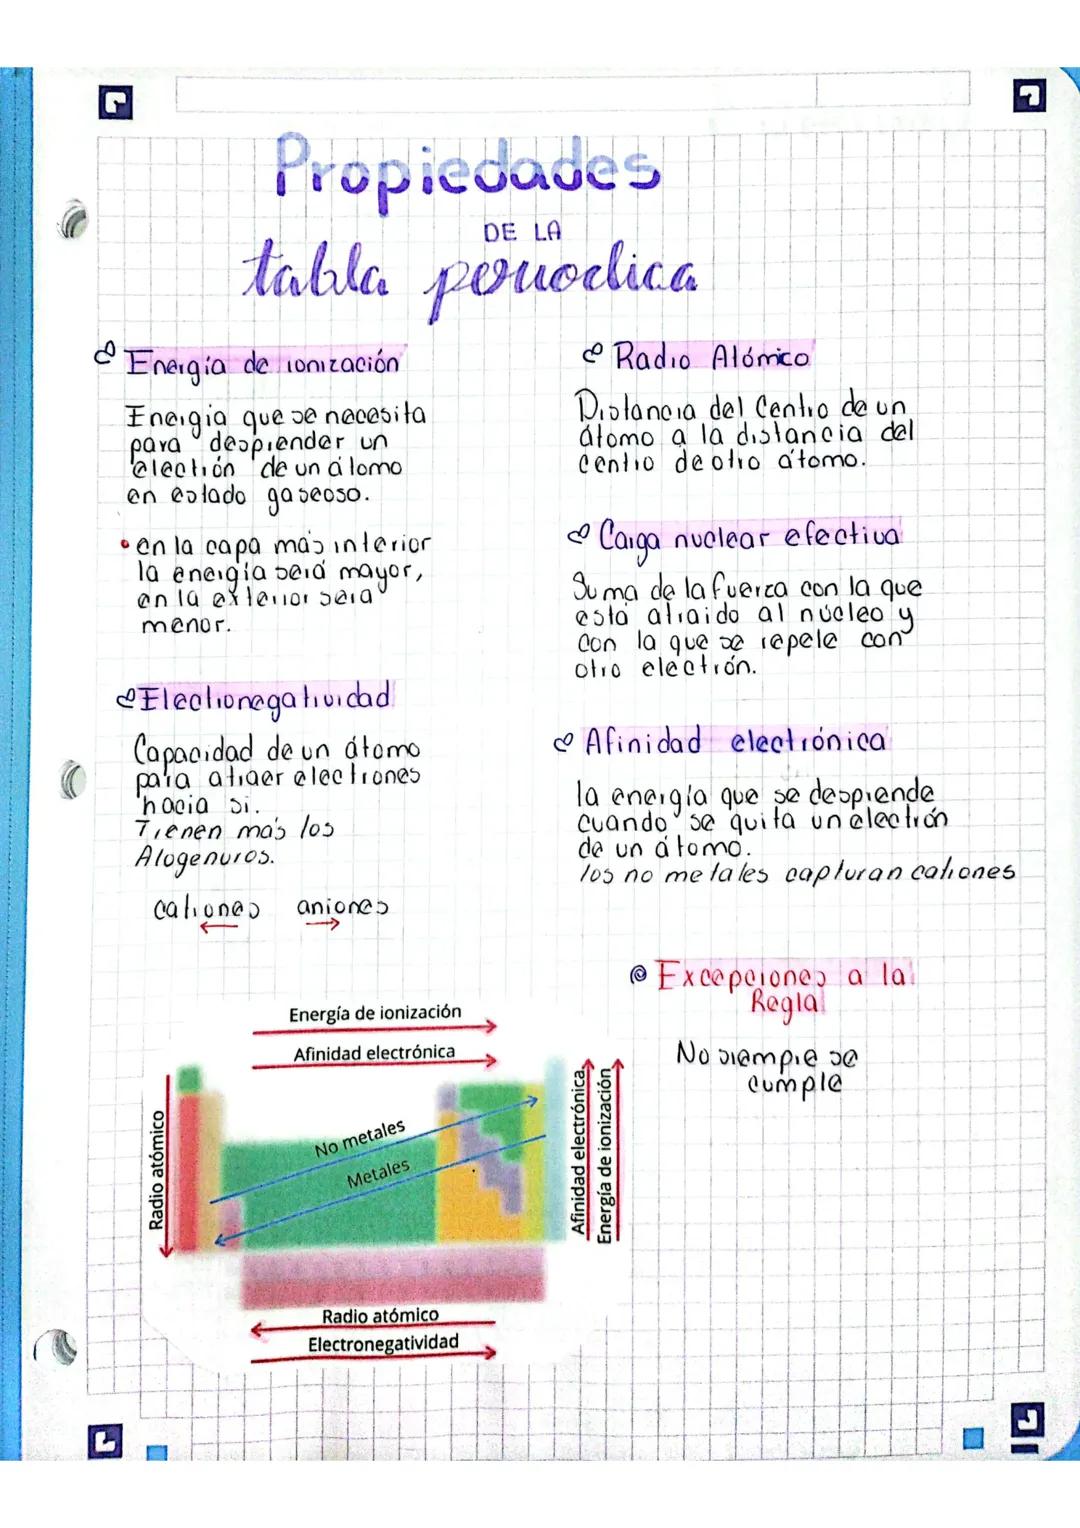 Propiedades
DE LA
tabla periodica
Energía de ionización
Energia que se necesita
para desprender un
electrón de un átomo
en estado gaseoso.
• en la capa más interior
la energía será mayor,
en la exterior será
menor.
Electronegatividad
Capacidad de un átomo
para atraer electrones
hacia si.
Tienen más los
Alogenuros.
cationes aniones
Radio Atómico
Distancia del Centro de un
átomo a la distancia del
centro de otro átomo.
Carga nuclear efectiva
Suma de la fuerza con la que
está atraido al núcleo y
con la que se repele con
otro electrón.
Afinidad electrónica
la energía que se desprende
cuando se quita un electrón
de un átomo.
los no metales capturan cationes
Excepciones a la
Regla
No siempre se
cumple
Energía de ionización
Afinidad electrónica
Radio atómico
No metales
Metales
Afinidad electrónica
Energía de ionización
Radio atómico
Electronegatividad